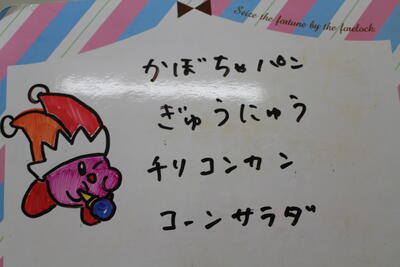 Seize the fortune by the forelock.
かぼちゃパン
ぎゅうにゅう
チリコンカン
コーンサラダ